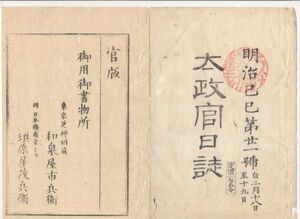 明治己巳第廿一號
自二月十八日
至十九日
太政官日誌
官版
御用御書物所
東京芝神明前
和泉屋市兵衛
同日本橋通壱丁目
須原屋茂兵衛